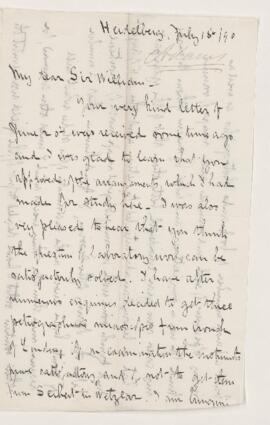 Heidelberg, July 18th/90
Adams
My dear Sir William -
Your very kind letter of
June 2 was received some time ago
and I was glad to learn that you
approved of the arrangements which I had
made for study here - I was also
very pleased to hear that you think
the question of laboratory work can be
satisfactorily solved. I have after
numerous enquiries decided to get three
petrographical microscopes from Crouch
of London, if on examination the instruments
prove satisfactory, and not to get them
from Seibert in Wetzlar. I am